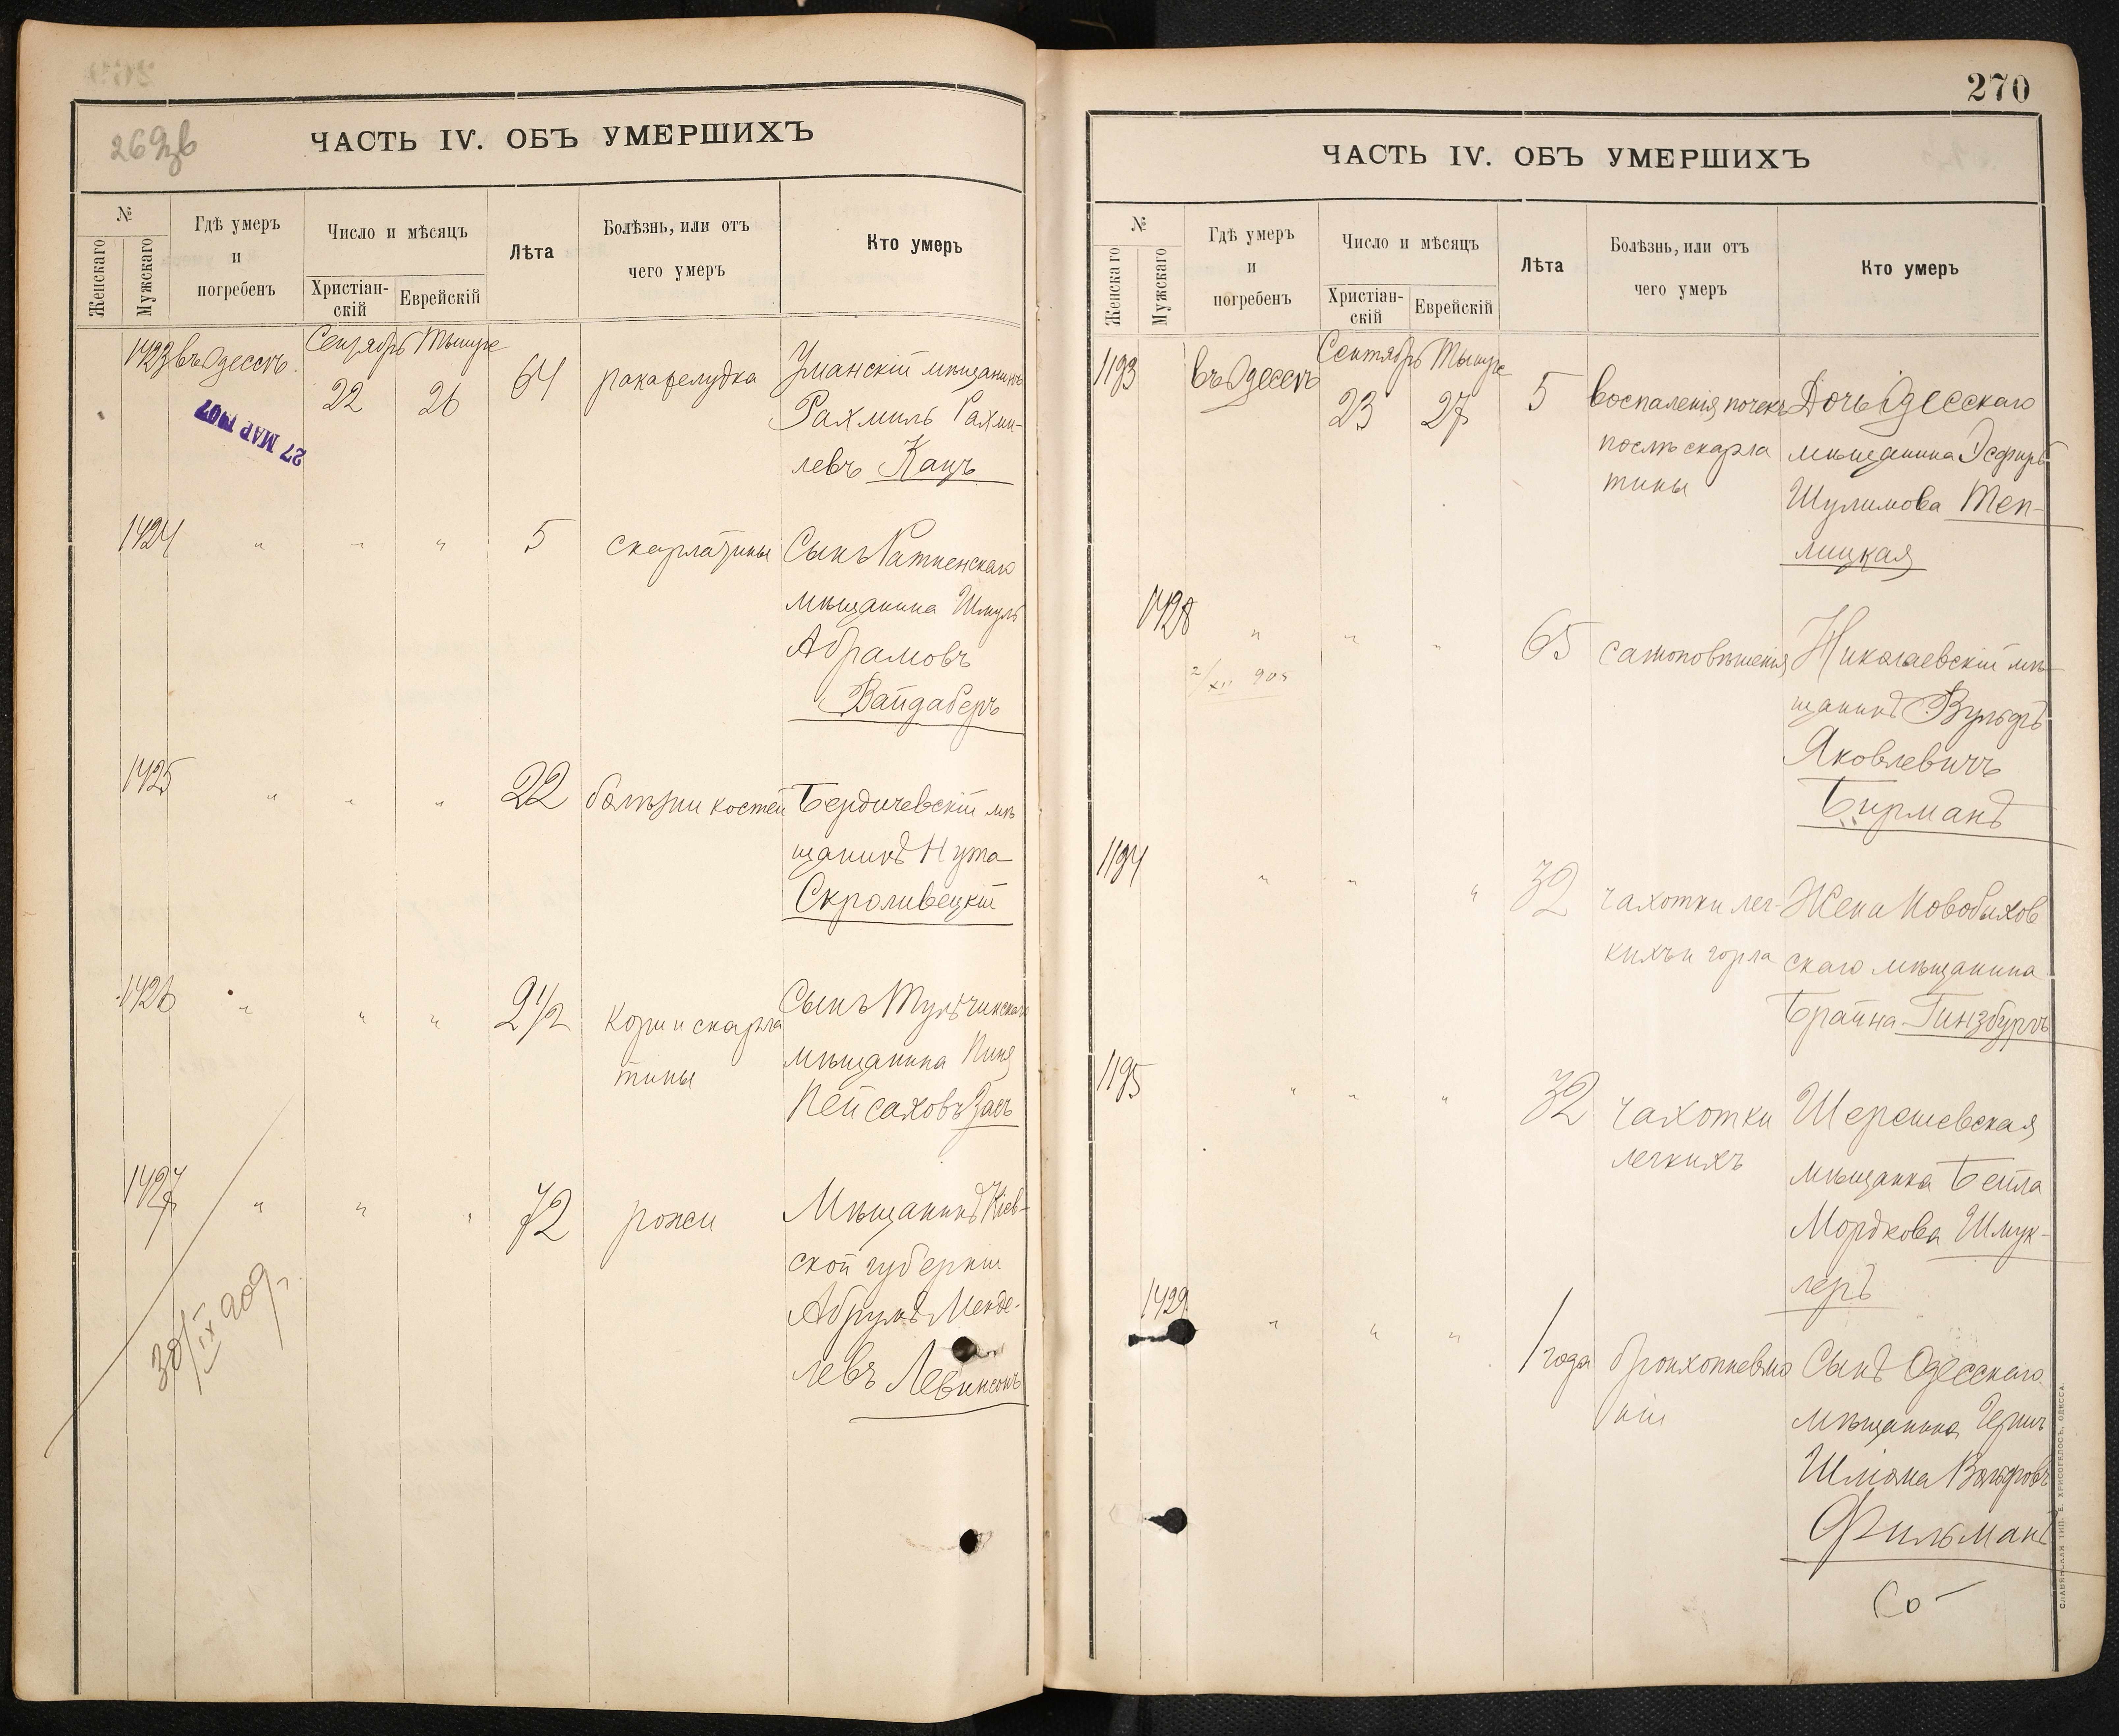 269зв
ЧАСТЬ IV. ОБЪ УМЕРШИХЪ
№
Женскаго
Мужскаго
Гдѣ умеръ
и
погребенъ
Число и мѣсяцъ
Христіан-
скій
Еврейскій
Лѣта
Болѣзнь, или отъ
чего умеръ
Кто умеръ
1423 въ Одессѣ.
Сентябрь Тышре
22 26 64 рака желудка
Уманскій мѣщанинъ
Рахмиль Рахми-
левъ Кацъ
27 МАР 1907
1424 " " " 5 скарлатины
Сынъ Ратненскаго
мѣщанина Шмуль
Абрамовъ
Вайдаберъ
1425 " " " 22 болѣзни костей
Бердичевскій мѣ
щанинъ Нута
Скроливецкій
1426 " " " 2 1/2 кори и скарла
тины
Сынъ Тульчинскаго
мѣщанина Пиня
Пейсаховъ Засъ
1427 " " " 72 рожи
Мѣщанинъ Кіев-
ской губерніи
Абрумъ Менде-
левъ Левинсонъ
30/IX 909
270
ЧАСТЬ IV. ОБЪ УМЕРШИХЪ
№
Женскаго
Мужскаго
Гдѣ умеръ
и
погребенъ
Число и мѣсяцъ
Христіан-
скій
Еврейскій
Лѣта
Болѣзнь, или отъ
чего умеръ
Кто умеръ
1193 въ Одессѣ
Сентябрь Тышре
23 27 5 воспаленія почекъ
послѣ скарла
тины
Дочь Одесскаго
мѣщанина Эсфирь
Шулимова Теп-
лицкая
1428 " " " 65 самоповѣшенія
2/XII 905
Николаевскій мѣ
щанинъ Вульфъ
Яковлевичъ
Бирманъ
1194 " " " 32 чахотки лег-
кихъ и горла
Жена Новобыхов
скаго мѣщанина
Брайна Гинзбургъ
1195 " " " 32 чахотки
легкихъ
Шерешевская
мѣщанка Бейла
Мордкова Шмук-
леръ
1429 " " " 1 года бронхопневмо
ніи
Сынъ Одесскаго
мѣщанина Гершъ
Шліома Вольфовъ
Фильманъ
Со-
СЛАВЯНСКАЯ ТИП. Е. ХРИСОГЕЛОСЪ, ОДЕССА.